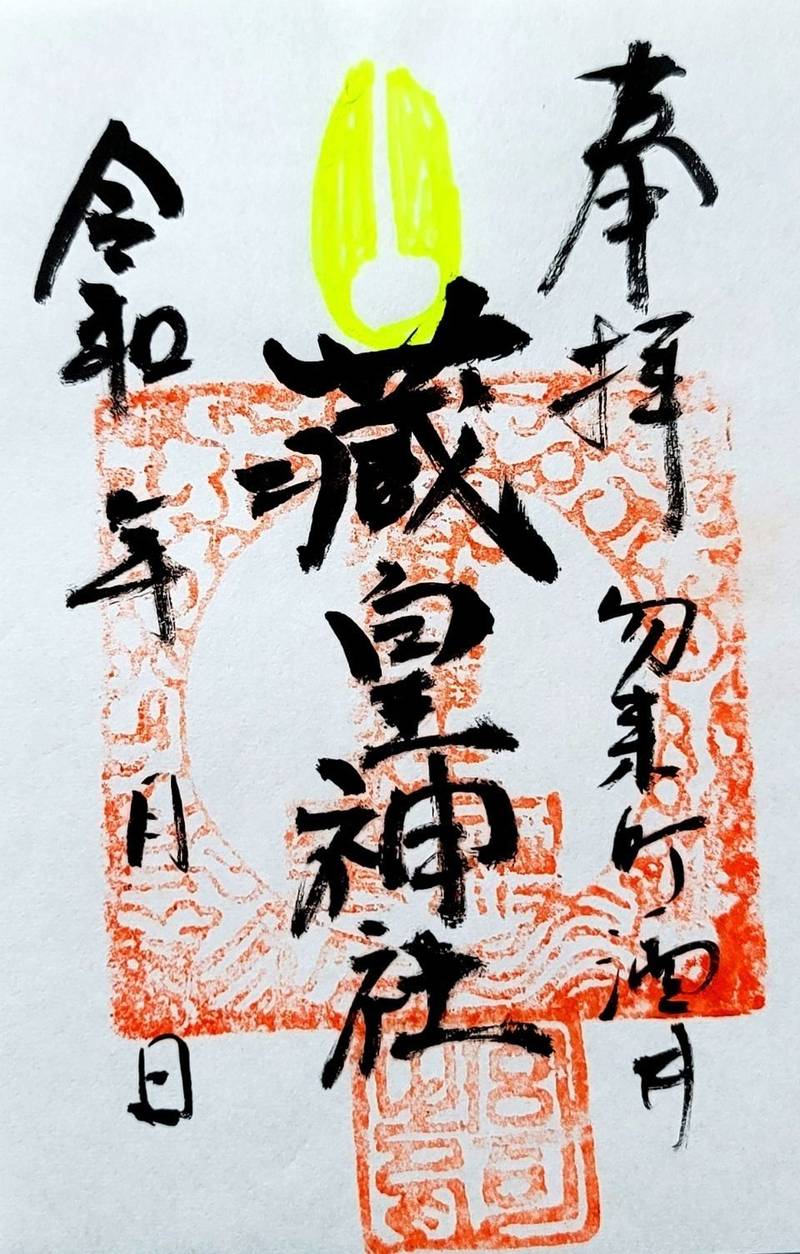 奉拝
勿来町酒井
蔵皇神社
令和 年 月 日